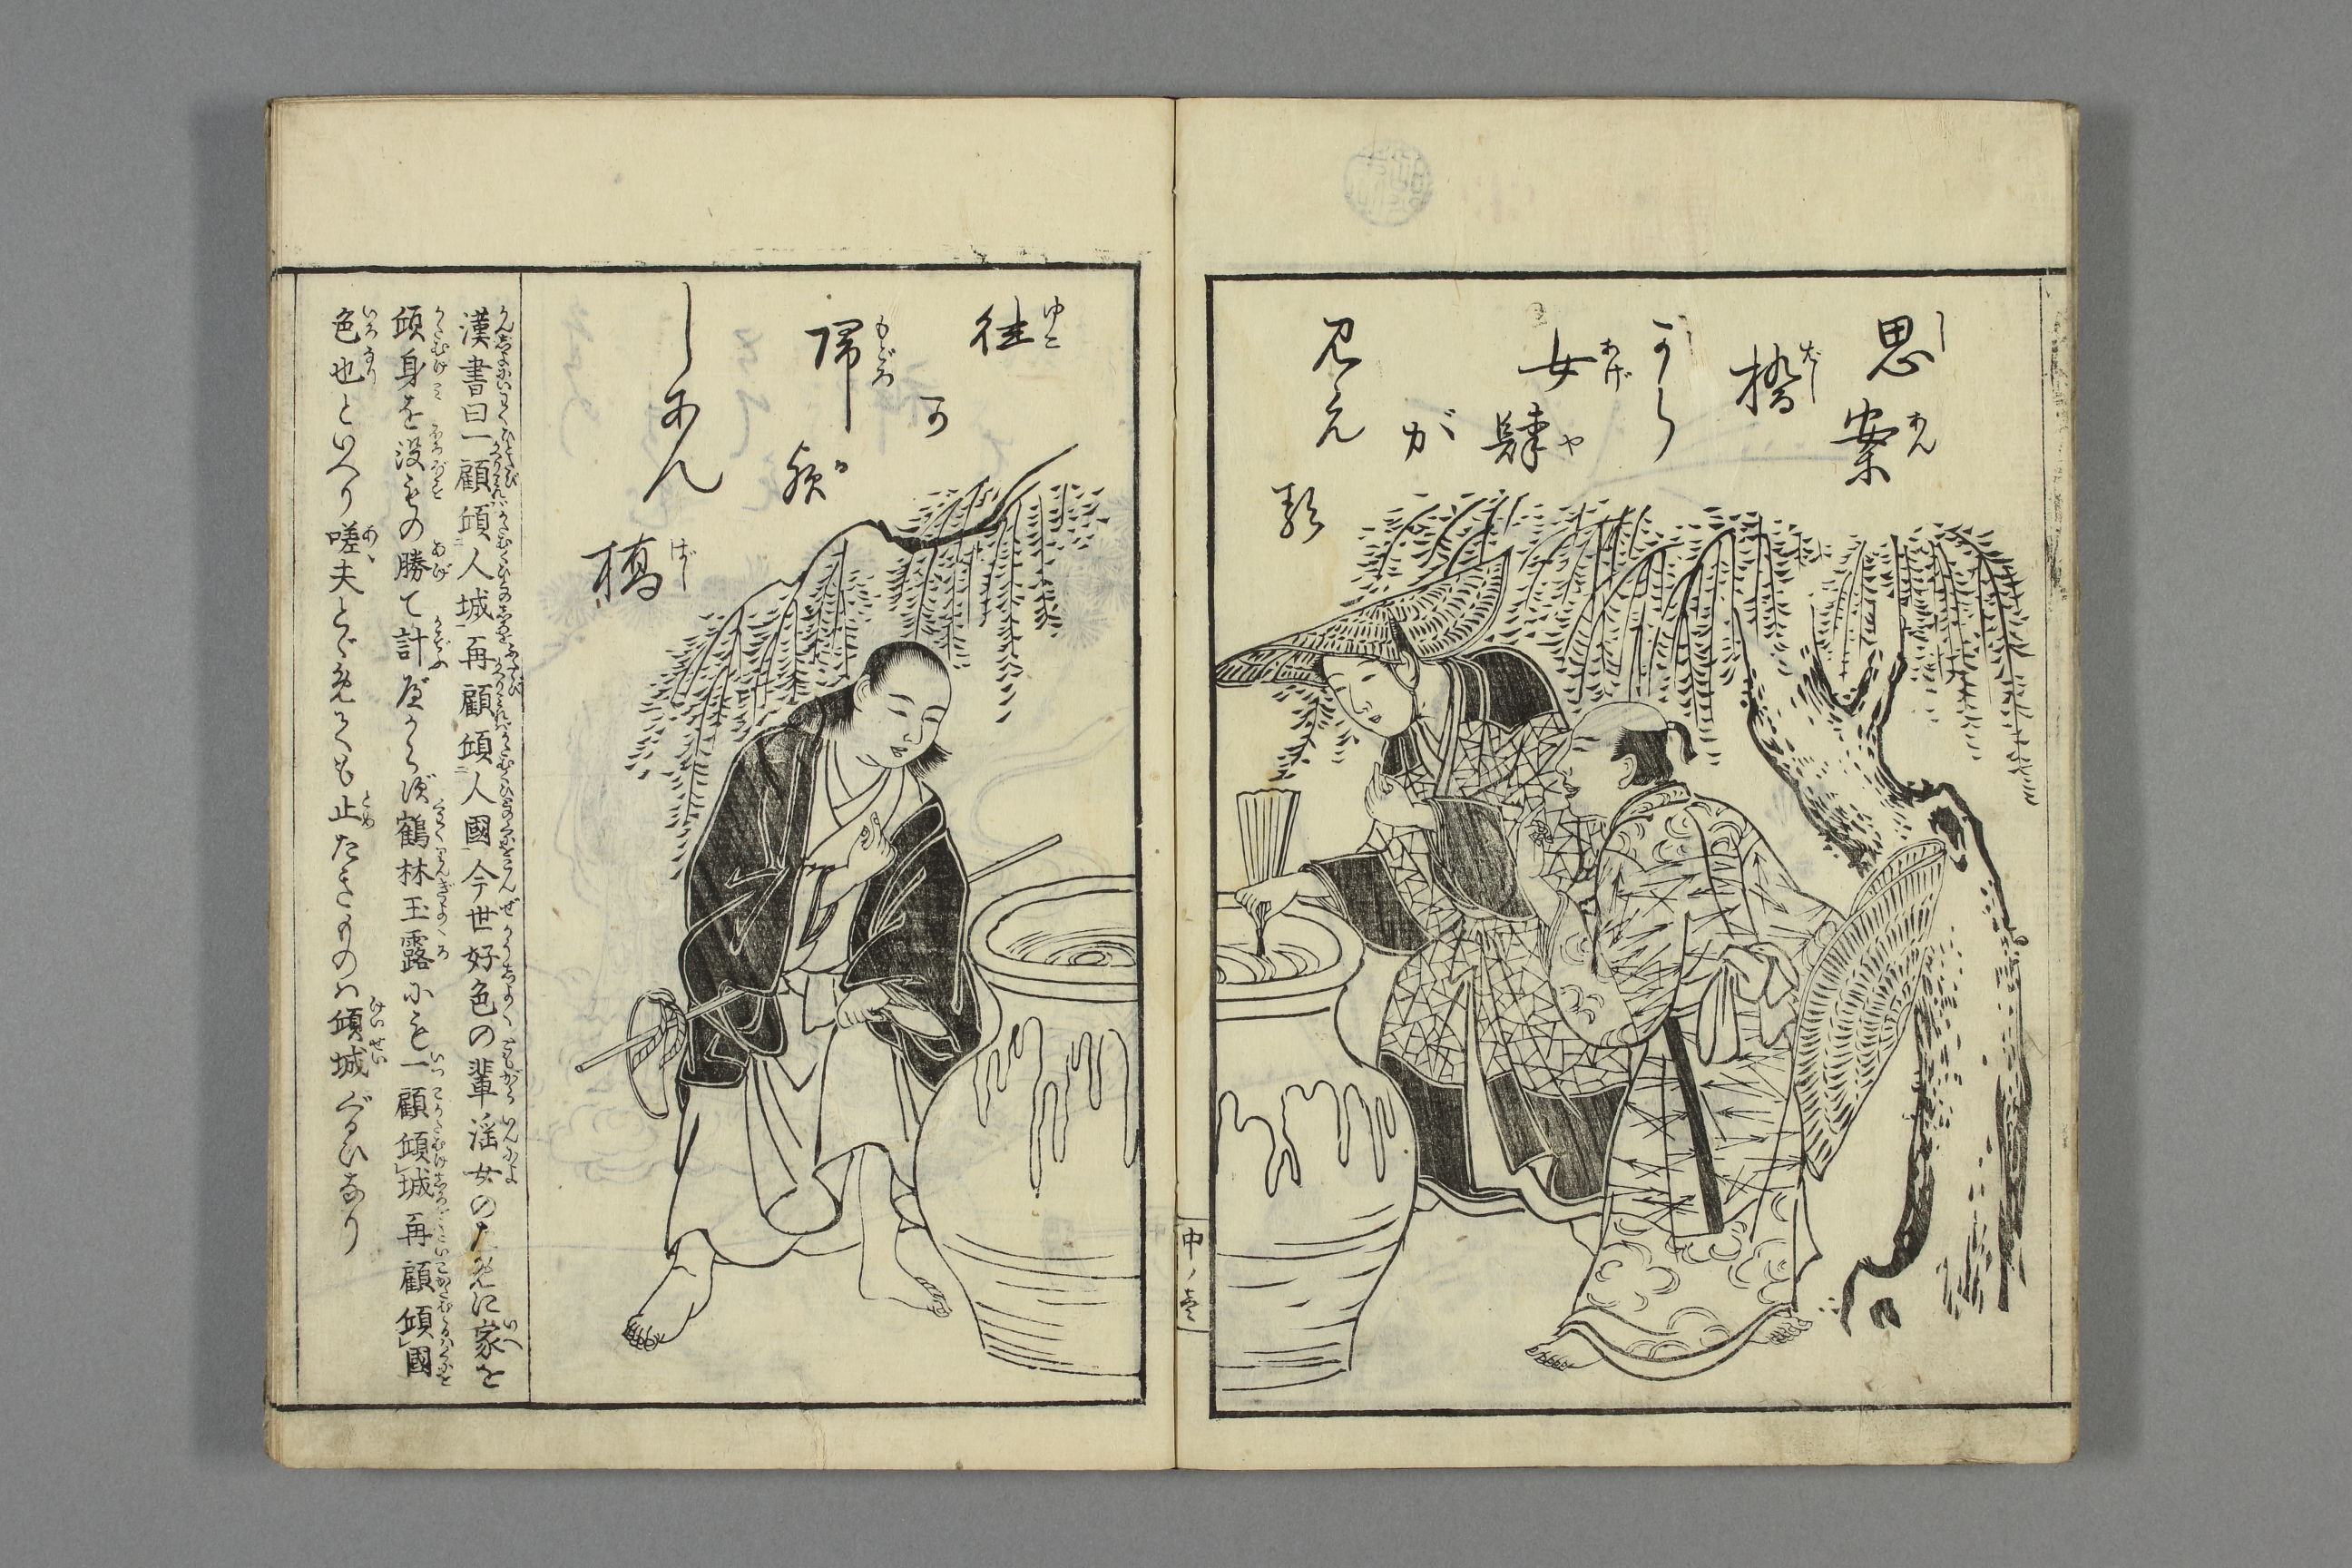 思案
橋
から
女肆
が
見え
往
か
帰
しあん
橋
漢書曰一顧傾人城再顧傾人國今世好色の輩淫女のために家を
傾身を没もの勝て計べからず鶴林玉露にも一顧傾城再顧傾國
色也といへり嗟夫とゞめても止たきものは傾城ぐるひなり
中ノ壱